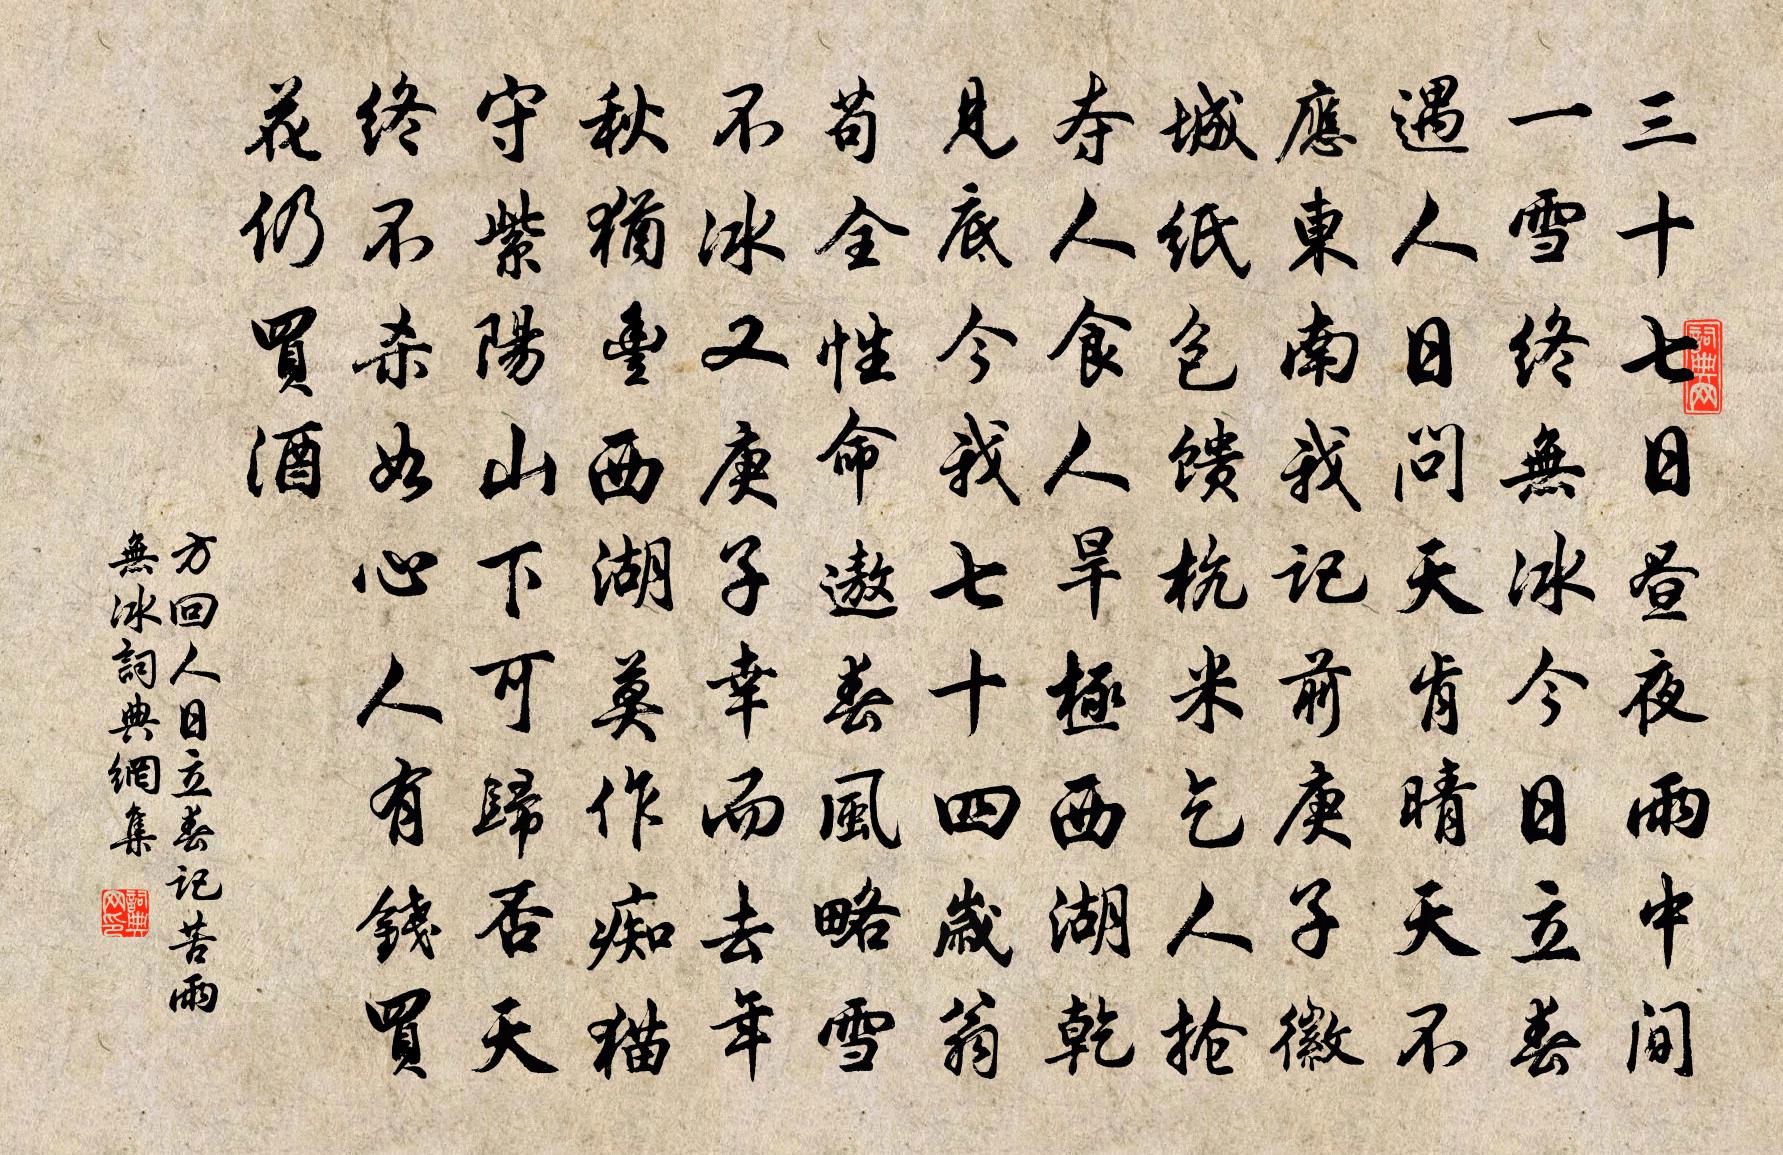 三十七日昼夜雨中間
一雪終無冰今日立春
遇人日問天肯晴天不
應東南我記前庚子徽
城纸包馈杭米乞人搶
夺人食人旱極西湖乾
見底今我七十四歲翁
苟全性命遨春風略雪
不冰又庚子幸而去年
秋猶豊西湖莫作痴猫
守紫陽山下可歸否天
終不杀如心人有錢買
花仍買酒
方回人日立春記苦雨
無冰詞典網集
詞典网
詞典网印